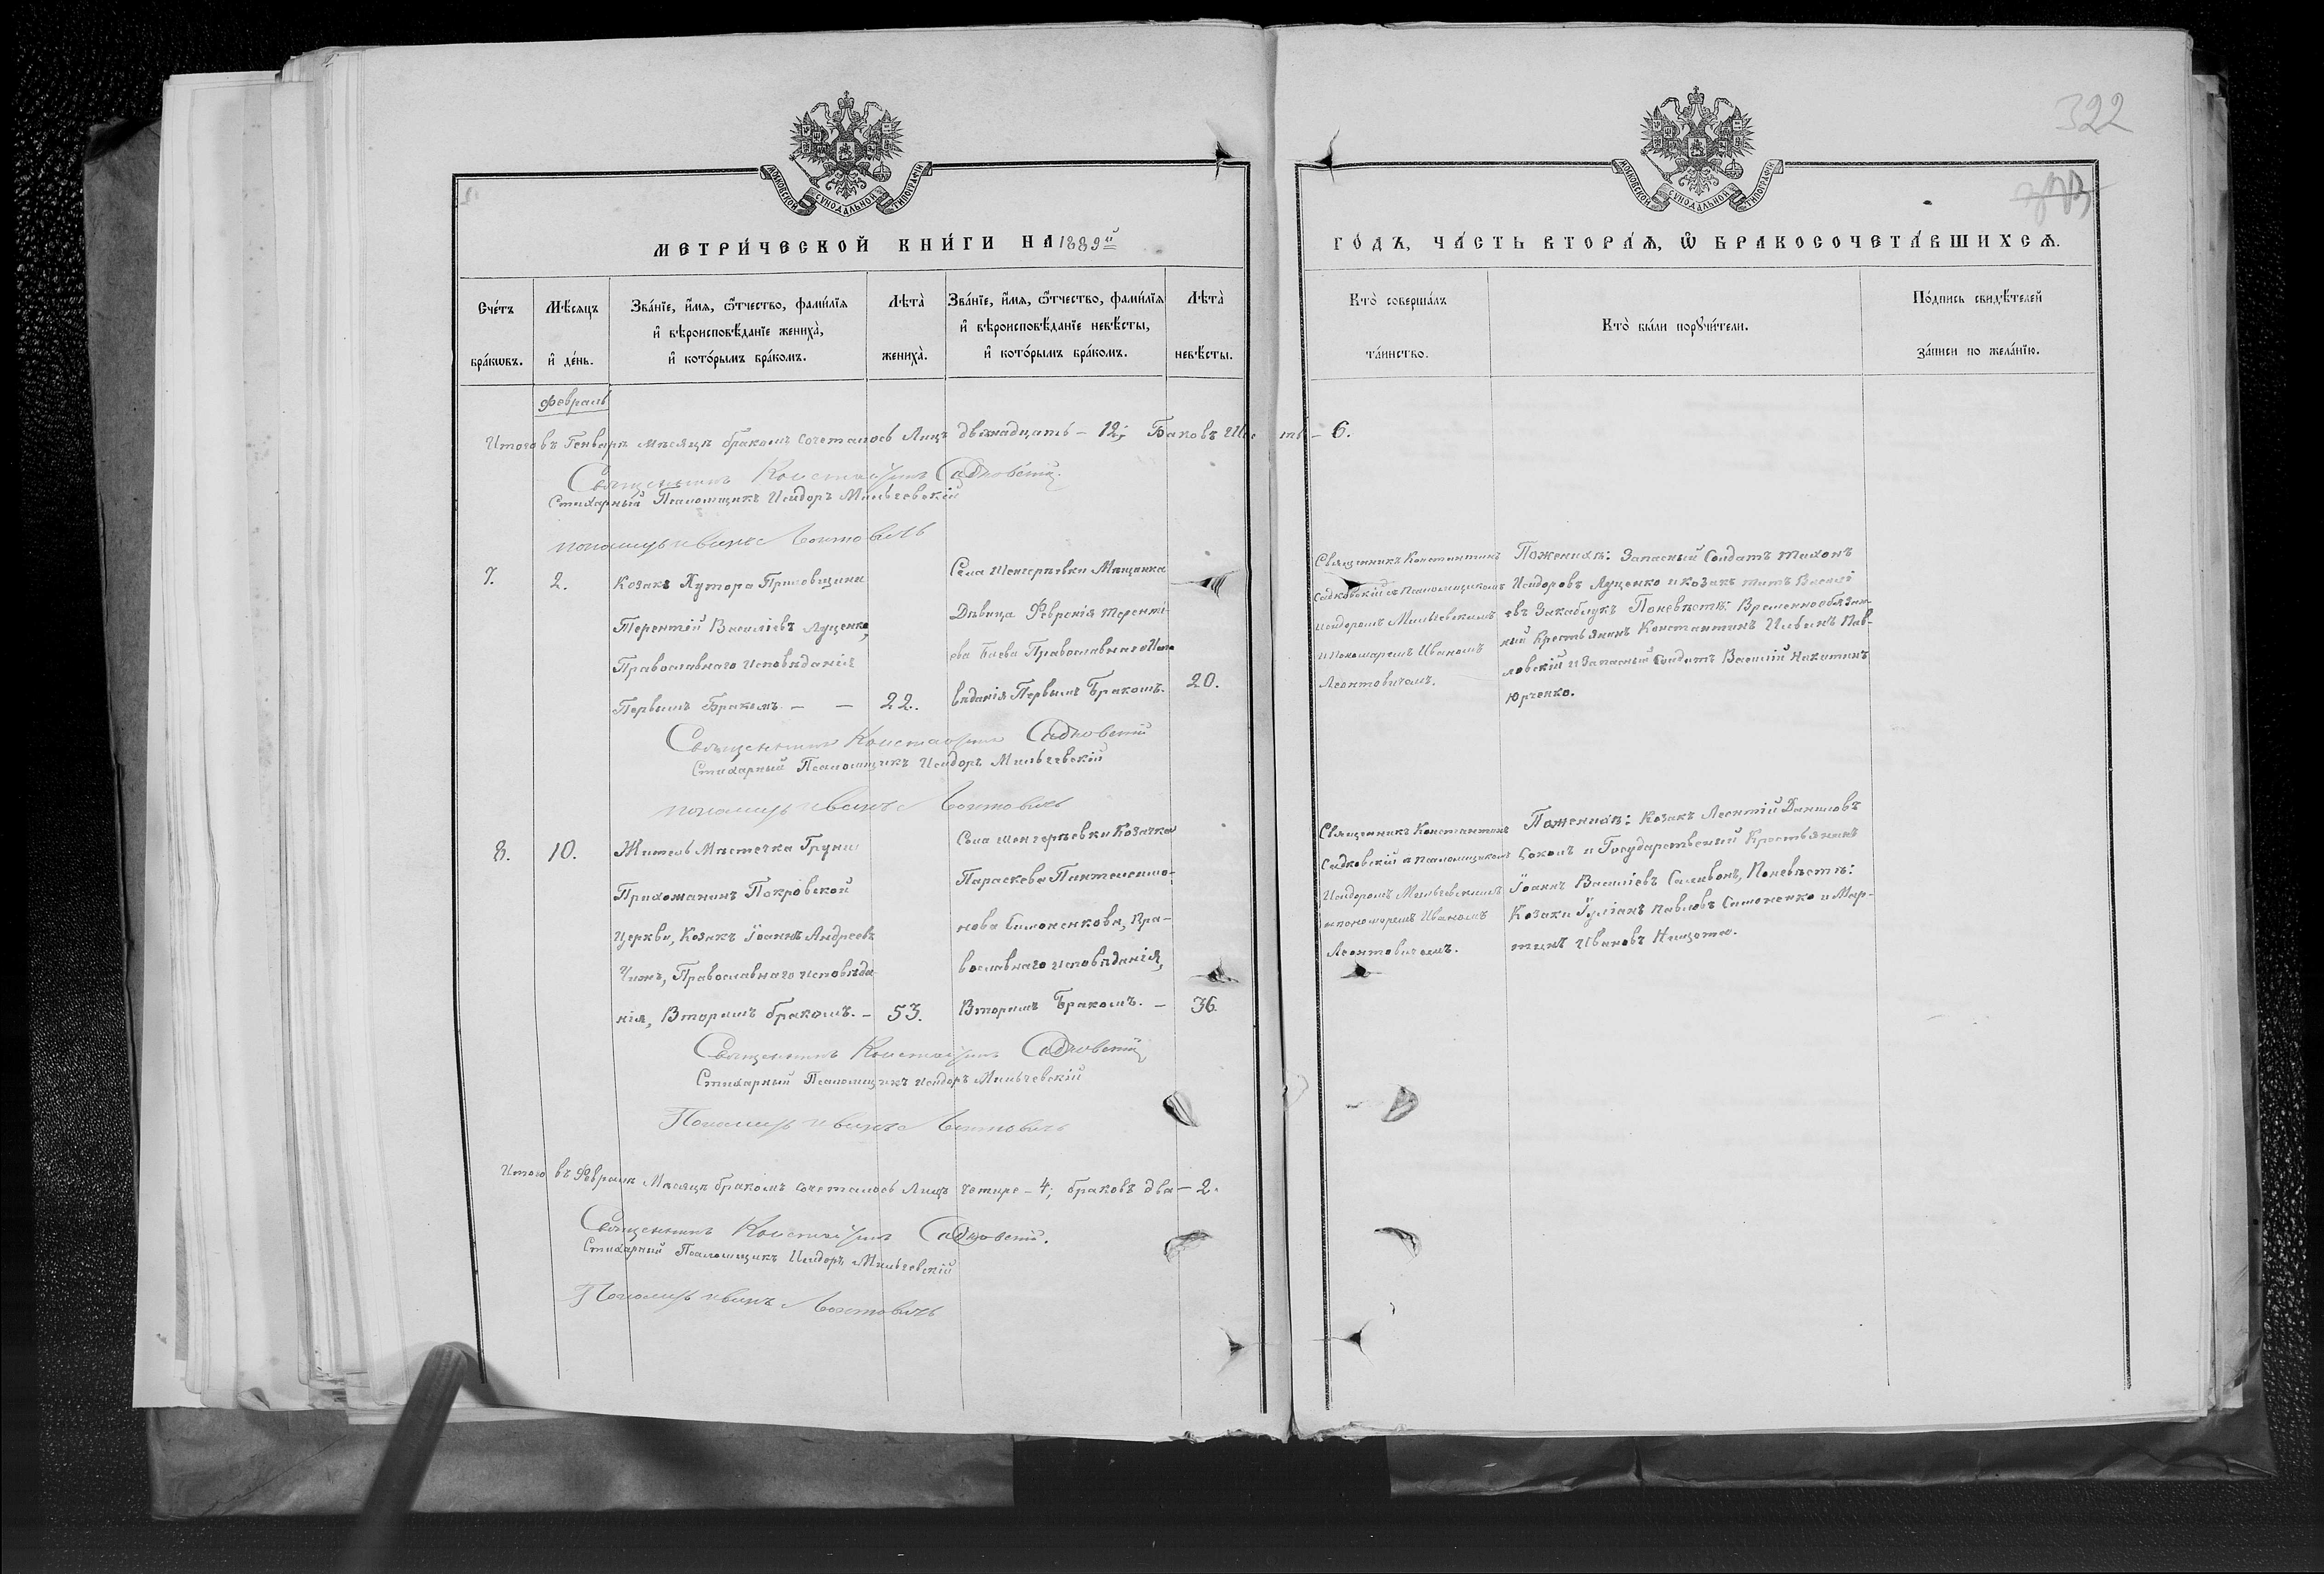 322
МОСКОВСКОЙ СѴНОДАЛЬНОЙ ТИПОГРАФІИ
МОСКОВСКОЙ СѴНОДАЛЬНОЙ ТИПОГРАФІИ
МЕТРИ́ЧЕСКОЙ КНИ́ГИ НА 1889й
ГО́ДЪ, ЧА́СТЬ ВТОРА́Ѧ, Ѽ БРАКОСОЧЕТА́ВШИХСѦ.
Сче́тъ бра́кѡвъ.
Мѣ́сяцъ и҆ де́нь.
Зва́нїе, и҆́мѧ, ѻ҆́тчество, фами́лїѧ
и҆ вѣроисповѣ́данїе жениха̀,
и҆ кото́рымъ бра́комъ.
Лѣта̀ жениха̀.
Зва́нїе, и҆́мѧ, ѻ҆́тчество, фами́лїѧ
и҆ вѣроисповѣ́данїе невѣ́сты,
и҆ кото́рымъ бра́комъ.
Лѣта̀ невѣ́сты.
Кто̀ соверша́лъ та́инство.
Кто̀ бы́ли порꙋчи́тели.
По́дпись свидѣ́телей за́писи по жела́нїю.
Февраль
Итого въ Генварѣ мѣсяцѣ бракомъ сочеталось Лицъ двѣнадцать – 12; Баковъ – 6.
Священникъ Константинъ Садковскій.
Стихарный Псаломщикъ Исидоръ Мильчевскій
пономарь Иванъ Леонтовичъ
7.
2.
Козакъ Хутора
Терентій Василіевъ Луценко,
Православнаго исповѣданія
Первымъ Бракомъ. – –
22.
Села Шенгерѣевки Мѣщанка
Дѣвица Февронія Теренті-
ева Баева Православнаго Испо
вѣданія Первымъ Бракомъ.
20.
Священникъ Константинъ
Садковскій съ Псаломщикомъ
Исидоромъ Мильчевскимъ
и Пономаремъ Иваномъ
Леонтовичемъ.
По женихѣ: Запасный Солдатъ Тихонъ
Исидоровъ Луценко и козакъ Титъ Василі
евъ Закаблукъ По невѣстѣ: Временнообязан-
ный Крестьянинъ Константинъ Ильинъ Пав-
ловскій и Запасный Солдатъ Василій Никитинъ
Юрченко.
Священникъ Константинъ Садковскій
Стихарный Псаломщикъ Исидоръ Мильчевскій
пономарь Иванъ Леонтовичъ
8.
10.
Житель Мѣстечка Груни
Прихожанинъ Покровской
Церкви, Козакъ Іоаннъ Андреевъ
Православнаго исповѣда
нія, Вторымъ бракомъ. –
53.
Села Шенгерѣевки Козачка
Параскева Пантелеимо-
нова Симоненкова, Пра-
вославнаго исповѣданія,
Вторымъ Бракомъ. –
36.
Священникъ Константинъ
Садковскій съ Псаломщикомъ
Исидоромъ Мильчевскимъ
и пономаремъ Иваномъ
Леонтовичемъ.
По женихѣ: Козакъ Леонтій Даниловъ
Соколъ и Государственый Крестьянинъ
Іоаннъ Василіевъ Селивонъ, По невѣстѣ:
Козаки Іуліанъ Павловъ Симоненко и Мар-
тинъ Ивановъ Нищота.
Священникъ Константинъ Садковскій
Стихарный Псаломщикъ Исидоръ Мильчевскій
Пономарь Иванъ Леонтовичъ
Итого въ Февралѣ Мѣсяцѣ бракомъ сочеталось Лицъ четыре – 4; браковъ два – 2.
Священникъ Константинъ Садковскій.
Стихарный Псаломщикъ Исидоръ Мильчевскій
Пономарь Иванъ Леонтовичъ